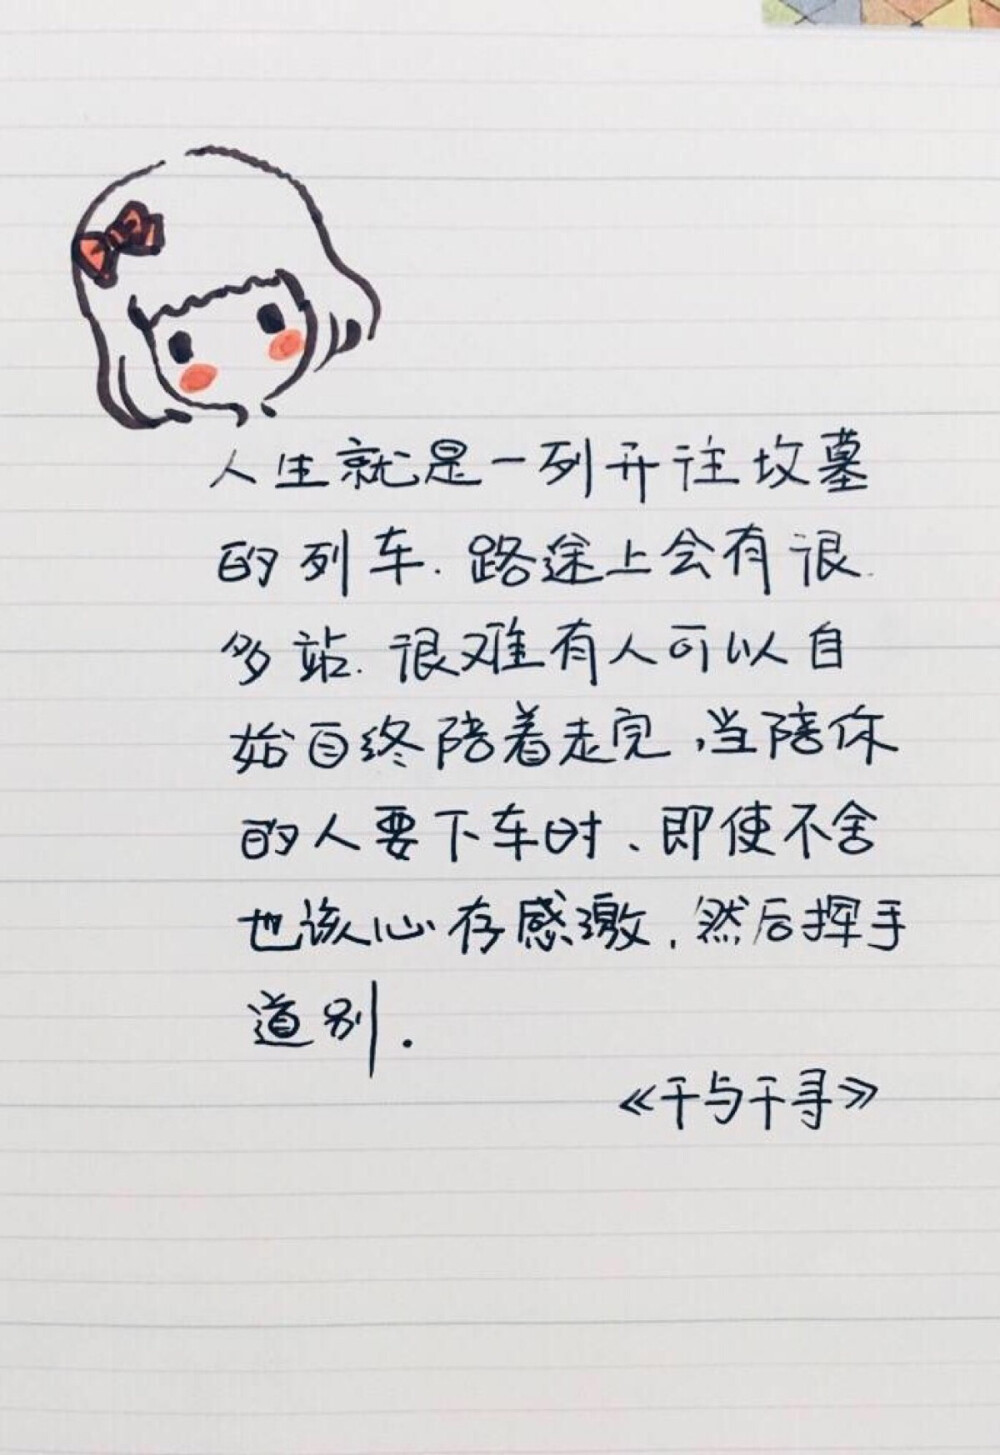 人生就是一列开往坟墓
的列车.路途上会有很
多站.很难有人可以自
始自终陪着走完,当陪你
的人要下车时、即使不舍
也该心存感激,然后挥手
道别.
《千与千寻》